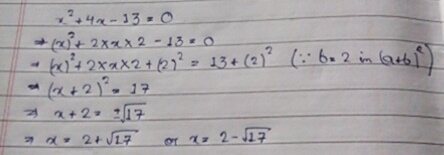 x² + 4x - 13 = 0
⇒ (x)² + 2 × x × 2 - 13 = 0
⇒ (x)² + 2 × x × 2 + (2)² = 13 + (2)² (∵ b = 2 in (a+b)²)
⇒ (x + 2)² = 17
⇒ x + 2 = ±√17
⇒ x = 2 + √17 or x = 2 - √17